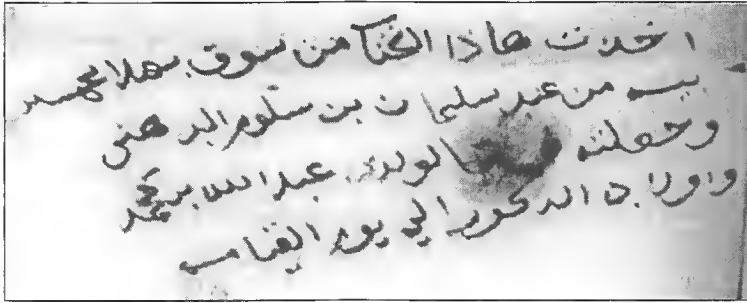 اخذت هاذا الكتا من سوق بهلا بخمسه
بيسه من عند سليمان بن سلوم الدهني
وجعلته لولدي عبدالله بن محمد
واولاده الذكور الي يوم القيامه